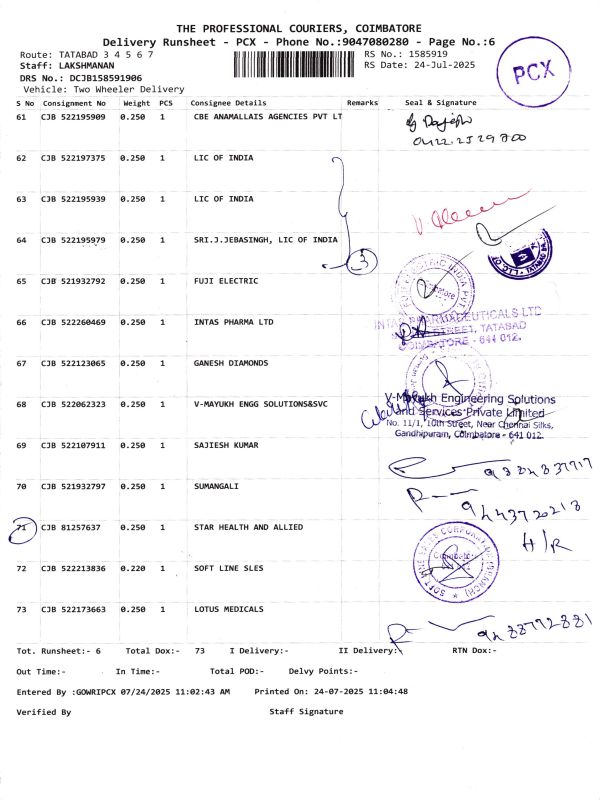 THE PROFESSIONAL COURIERS, COIMBATORE
Delivery Runsheet - PCX - Phone No.:9047080280 - Page No.:6
Route: TATABAD 3 4 5 6 7
RS No.: 1585919
Staff: LAKSHMANAN
RS Date: 24-Jul-2025
DRS No.: DCJB158591906
Vehicle: Two Wheeler Delivery
PCX
S No Consignment No Weight PCS Consignee Details Remarks Seal & Signature
61 CJB 522195909 0.250 1 CBE ANAMALLAIS AGENCIES PVT LT
0422 2529700
62 CJB 522197375 0.250 1 LIC OF INDIA
63 CJB 522195939 0.250 1 LIC OF INDIA
64 CJB 522195979 0.250 1 SRI.J.JEBASINGH, LIC OF INDIA
3
65 CJB 521932792 0.250 1 FUJI ELECTRIC
66 CJB 522260469 0.250 1 INTAS PHARMA LTD
INTAS PHARMACEUTICALS LTD
STREET, TATABAD
COIMBATORE - 641 012.
67 CJB 522123065 0.250 1 GANESH DIAMONDS
68 CJB 522062323 0.250 1 V-MAYUKH ENGG SOLUTIONS&SVC
V-Mayukh Engineering Solutions
and Services Private Limited
No. 11/1, 10th Street, Near Chennai Silks,
Gandhipuram, Coimbatore - 641 012.
69 CJB 522107911 0.250 1 SAJIESH KUMAR
70 CJB 521932797 0.250 1 SUMANGALI
9443720218
71 CJB 81257637 0.250 1 STAR HEALTH AND ALLIED
H/R
72 CJB 522213836 0.220 1 SOFT LINE SLES
73 CJB 522173663 0.250 1 LOTUS MEDICALS
Tot. Runsheet:- 6 Total Dox:- 73 I Delivery:- II Delivery:- RTN Dox:-
Out Time:- In Time:- Total POD:- Delvy Points:-
Entered By :GOWRIPCX 07/24/2025 11:02:43 AM Printed On: 24-07-2025 11:04:48
Verified By Staff Signature